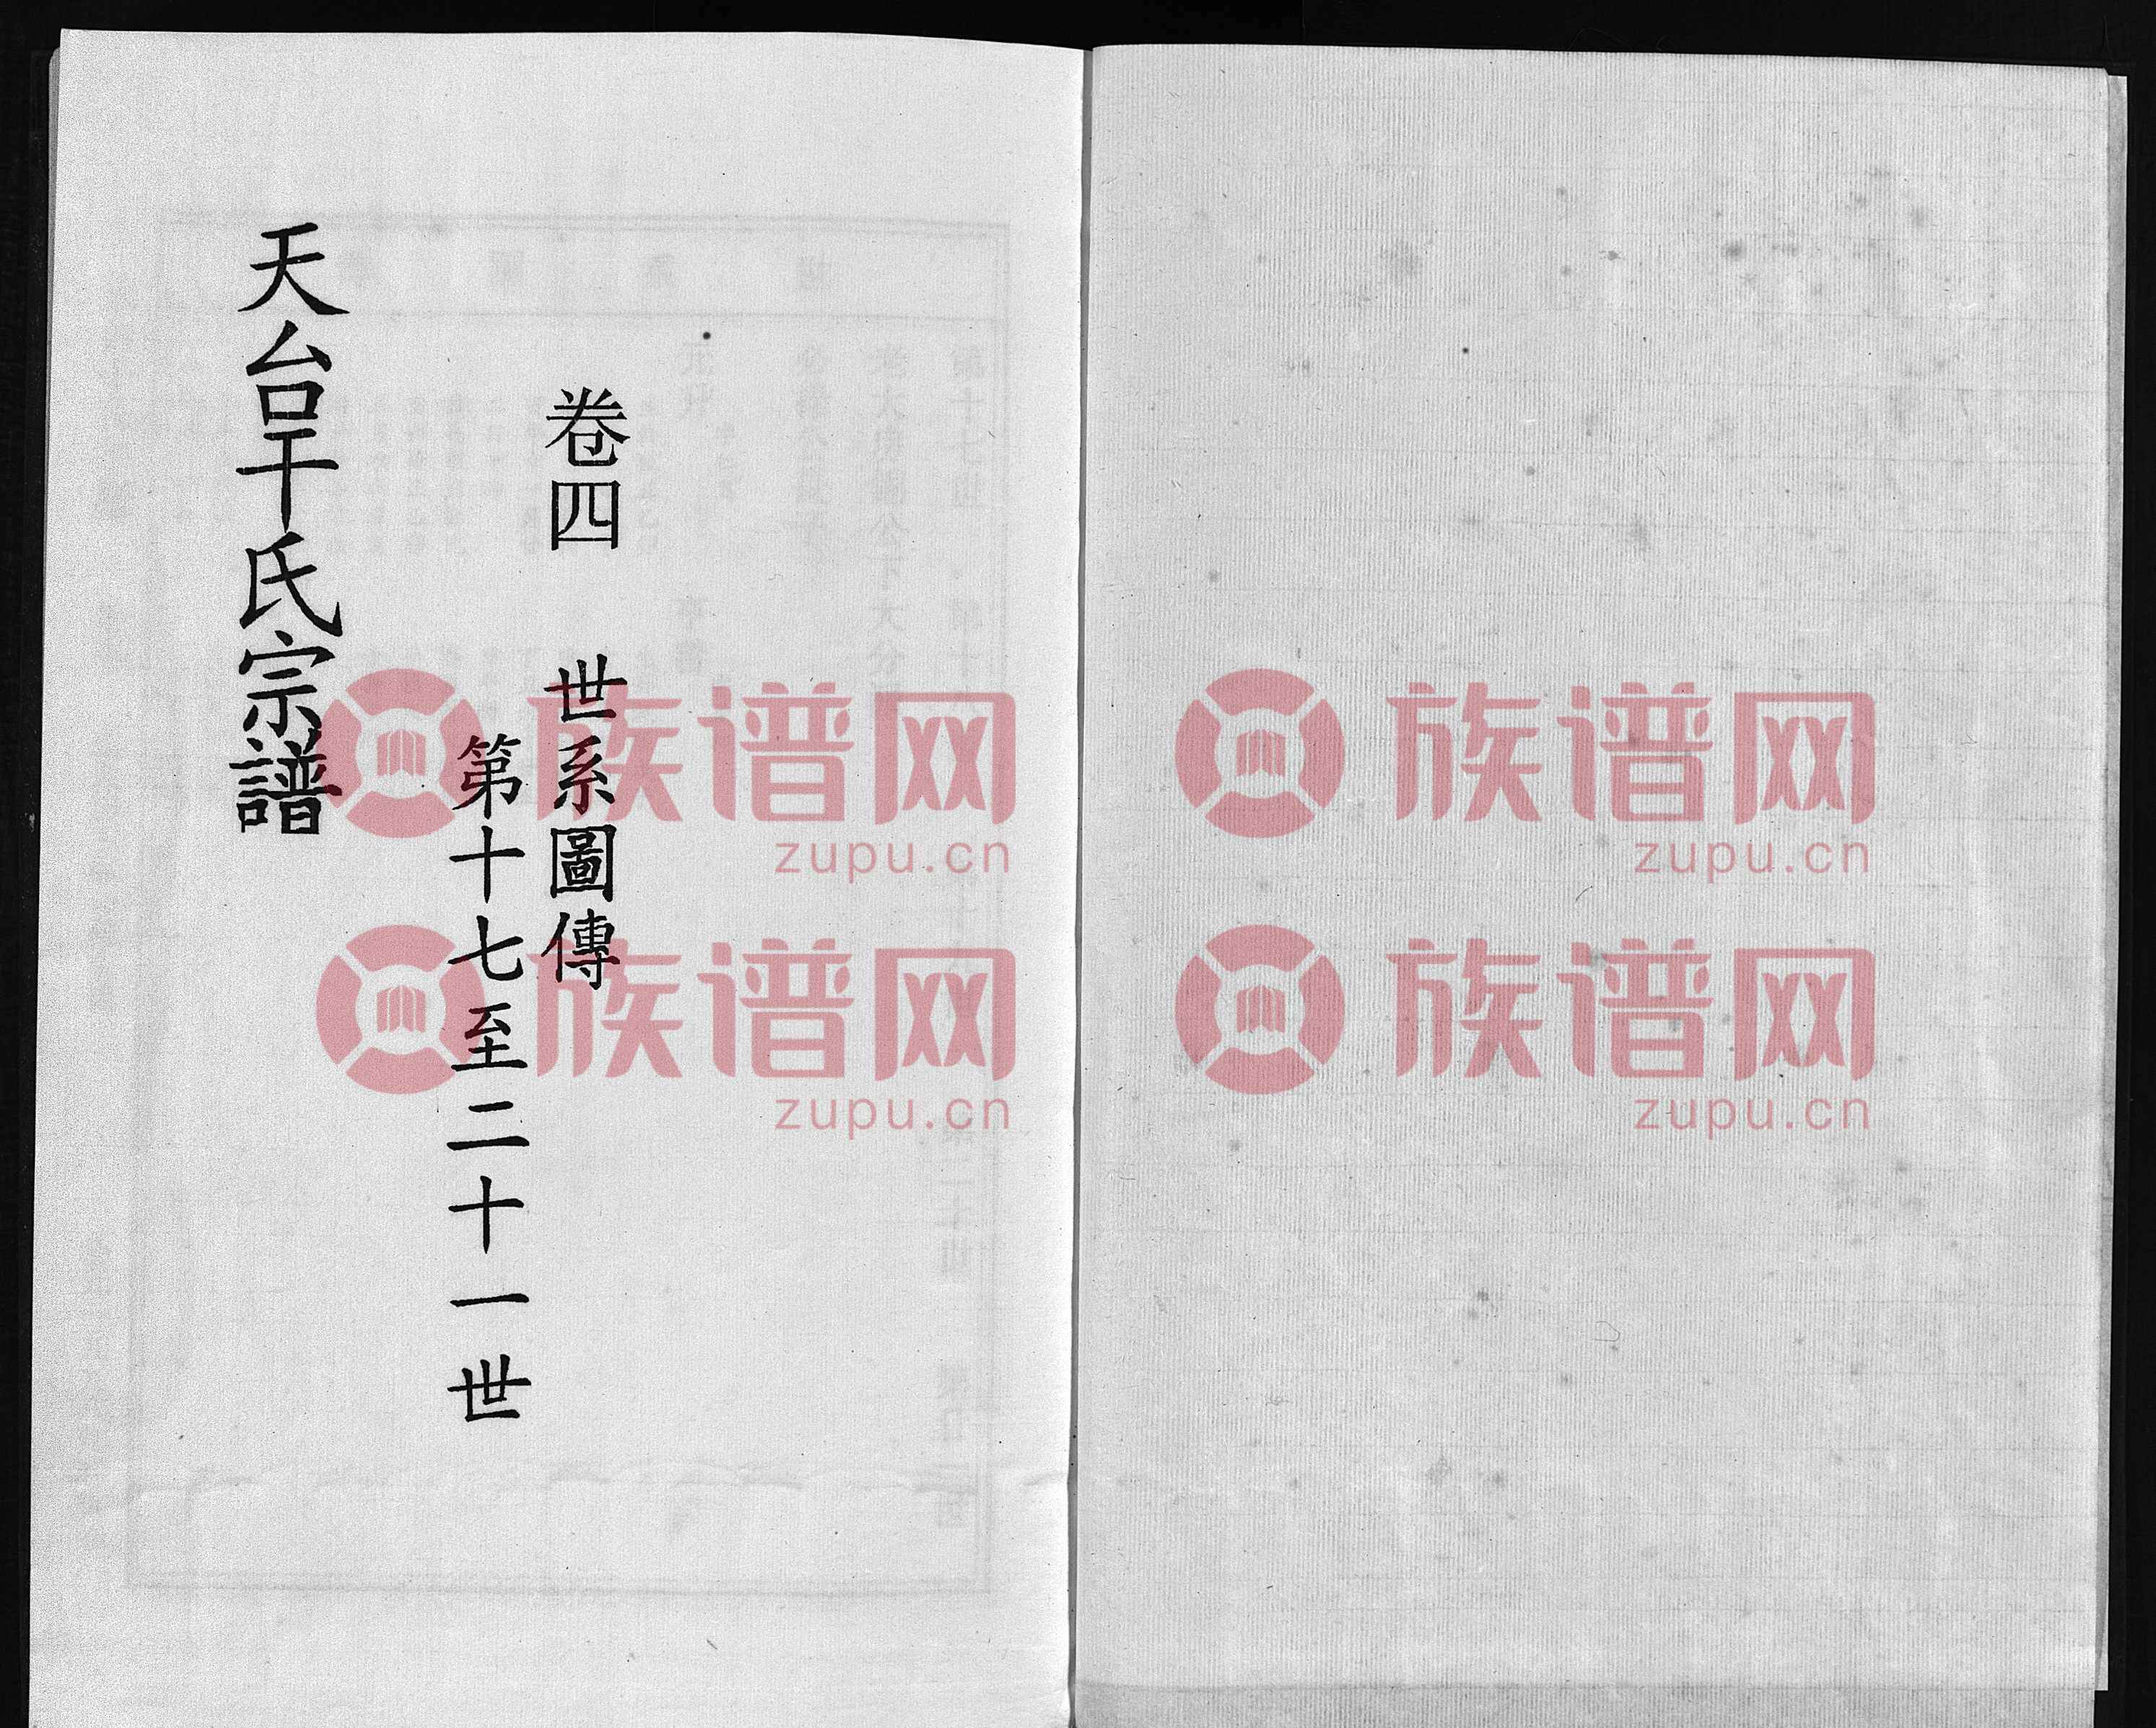 卷四 世系圖傳
第十七至二十一世
天台干氏宗譜
族谱网
zupu.cn
族谱网
zupu.cn
族谱网
zupu.cn
族谱网
zupu.cn